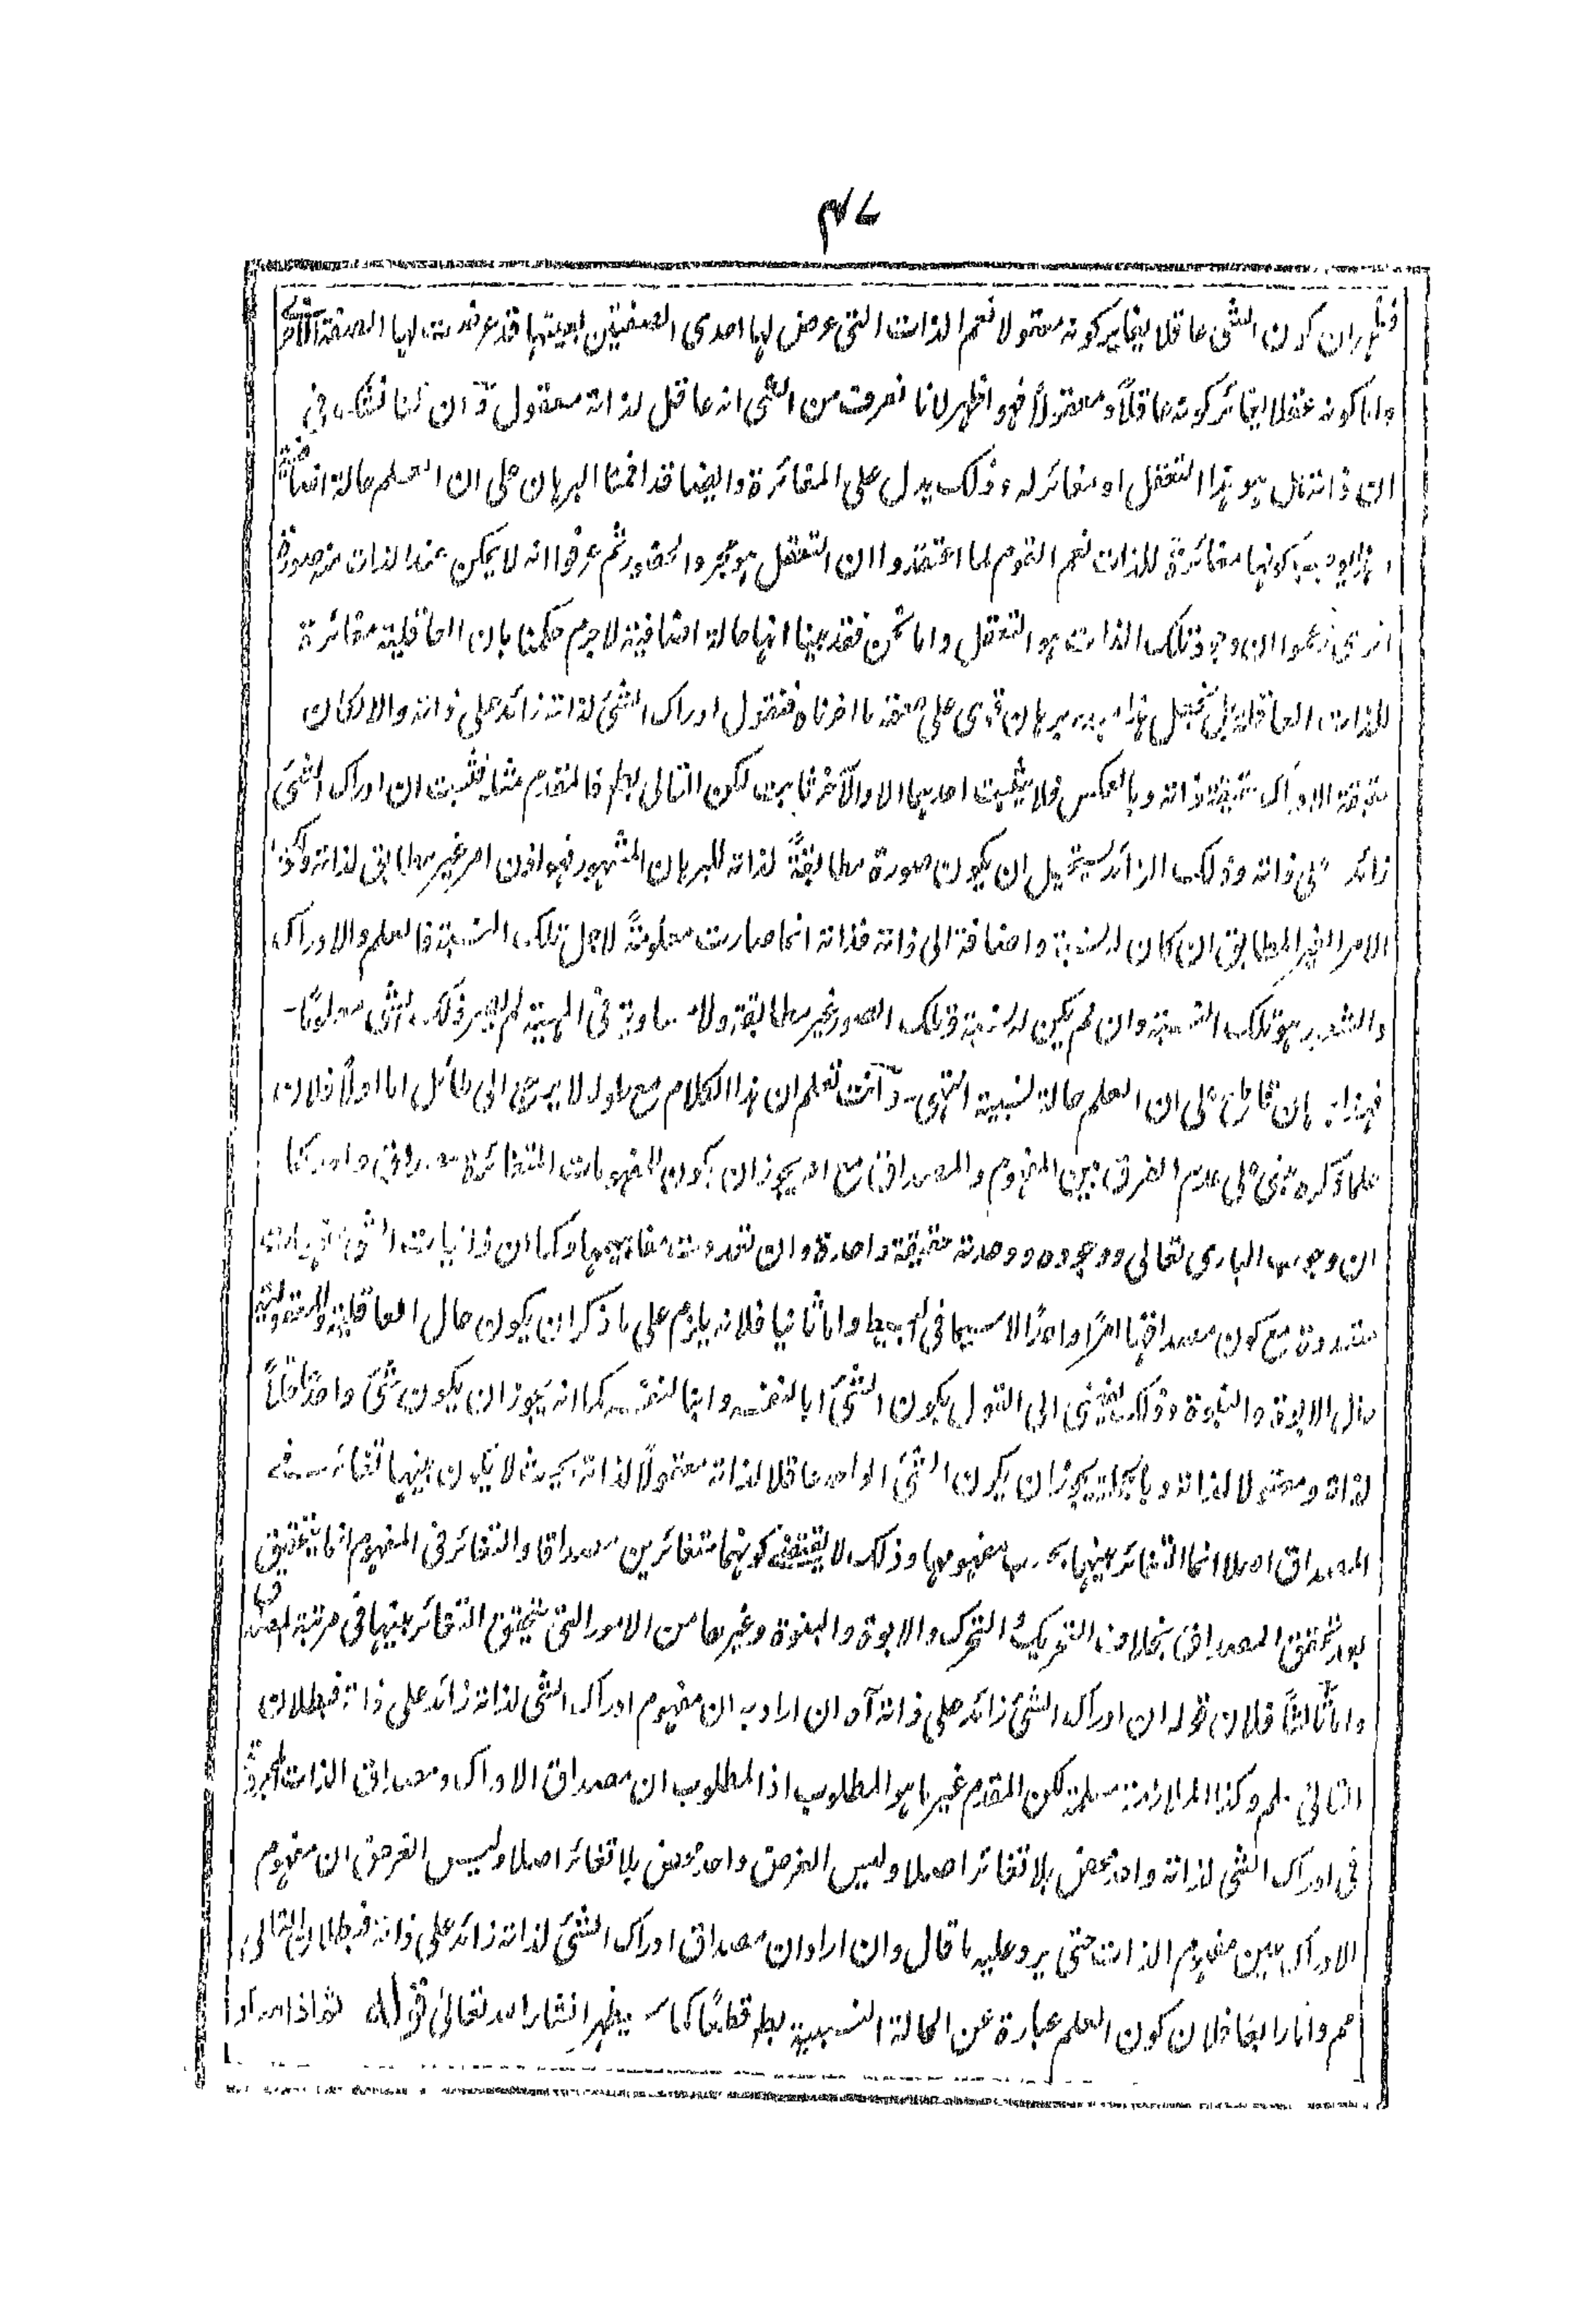 ٤٧
فظهر ان كون الشئ عاقلا يغاير كونه معقولا فنعم الذات التى عرض لها احدى الصفتين بعينها قد عرضت لها الصفة الاخرى
واما كونه عقلا يغائر كونه عاقلاً ومعقولاً فهو اظهر لانا نعرف من الشئ انه عاقل لذاته معقول ثم ان لنا نشك فى
ان ذاته هل هو هذا التعقل او مغائر له وذلك يدل على المغائرة وايضا قد اقمنا البرهان على ان العلم حالة اضافية
وهذا يوجب كونها مغائرةً للذات نعم القوم لما اعتقدوا ان التعقل هو مجرد الحضور ثم عرفوا انه لا يمكن عند الذات منه صورة
اخرى زعموا ان وجود تلك الذات هو التعقل واما نحن فقد بينا انها حالة اضافية لا جرم حكمنا بان العاقلية مغائرة
للذات العاقلة بل نجعل هذا برهان قوى على صحة ما اخرناه فنقول ادراك الشئ لذاته زائد على ذاته والا لكان
حقيقة الادراك حقيقة ذاته وبالعكس فلا يثبت احدهما الا والآخر ثابت لكن التالى بط فالمقدم مثله فثبت ان ادراك الشئ
زائد على ذاته وذلك الزائد يستحيل ان يكون صورة مطابقةً لذاته للبرهان المشهور فهو اذن امر غير مطابق لذاته وذلك
الامر الغير المطابق ان كان له نسبة واضافة الى ذاته فذاته انما صارت معلومةً لاجل تلك النسبة فالعلم والادراك
والشعور هو تلك النسبة وان لم يكن له نسبة وتلك الصور غير مطابقة ولا مساوية فى المهية لم يصر ذلك الشئ معلومًا
فهذا برهان قاطع على ان العلم حالة نسبية انتهى وانت تعلم ان هذا الكلام مع طوله لا يرجع الى طائل اما اولاً فلان
كلما ذكره مبنى على عدم الفرق بين المفهوم والمصداق مع انه يجوز ان يكون للمفهومات المتغائرة مصداق واحد كما
ان وجوب البارى تعالى ووجوده ووحدته حقيقة واحدة وان تعددت مفاهيمها وكما ان ذاتيات الشئ
متعددة مع كون مصداقها امرًا واحدًا لا سيما فى البسيط واما ثانيا فلانه يلزم على ما ذكر ان يكون حال العاقلية والمعقولية
مثل الابوة والبنوة وذلك يفضى الى القول بكون الشئ ابا لنفسه وابنا لنفسه كما انه يجوز ان يكون شئ واحد عاقلاً
لذاته ومعقولا لذاته وبالجملة يجوز ان يكون الشئ الواحد عاقلا لذاته معقولاً لذاته بحيث لا يكون بينهما تغائر فى
المصداق اصلا انما التغائر بينهما بحسب مفهومهما وذلك لا يقتضى كونهما متغائرين مصداقا والتغائر فى المفهوم انما يتحقق
بعد تحقق المصداق بخلاف التحريك والتحرك والابوة والبنوة وغيرها من الامور التى يتحقق التغائر بينها فى مرتبة المصداق
واما ثالثاً فلان قوله ان ادراك الشئ زائد على ذاته آه ان اراد به ان مفهوم ادراك الشئ لذاته زائد على ذاته فبطلان
التالى مسلم وكذا الملازمة مسلمة لكن المقدم غير ما هو المطلوب اذ المطلوب ان مصداق الادراك ومصداق الذات المجردة
فى ادراك الشئ لذاته واحد محض بلا تغائر اصلا وليس الغرض واحد محض بلا تغائر اصلا وليس الغرض ان مفهوم
الادراك عين مفهوم الذات حتى يرد عليه ما قال وان اراد ان مصداق ادراك الشئ لذاته زائد على ذاته فبطلان التالى
مم واما رابعا فلان كون العلم عبارة عن الحالة النسبية بط قطعًا كما سيظهر انشاء الله تعالى قوله ثم اذا